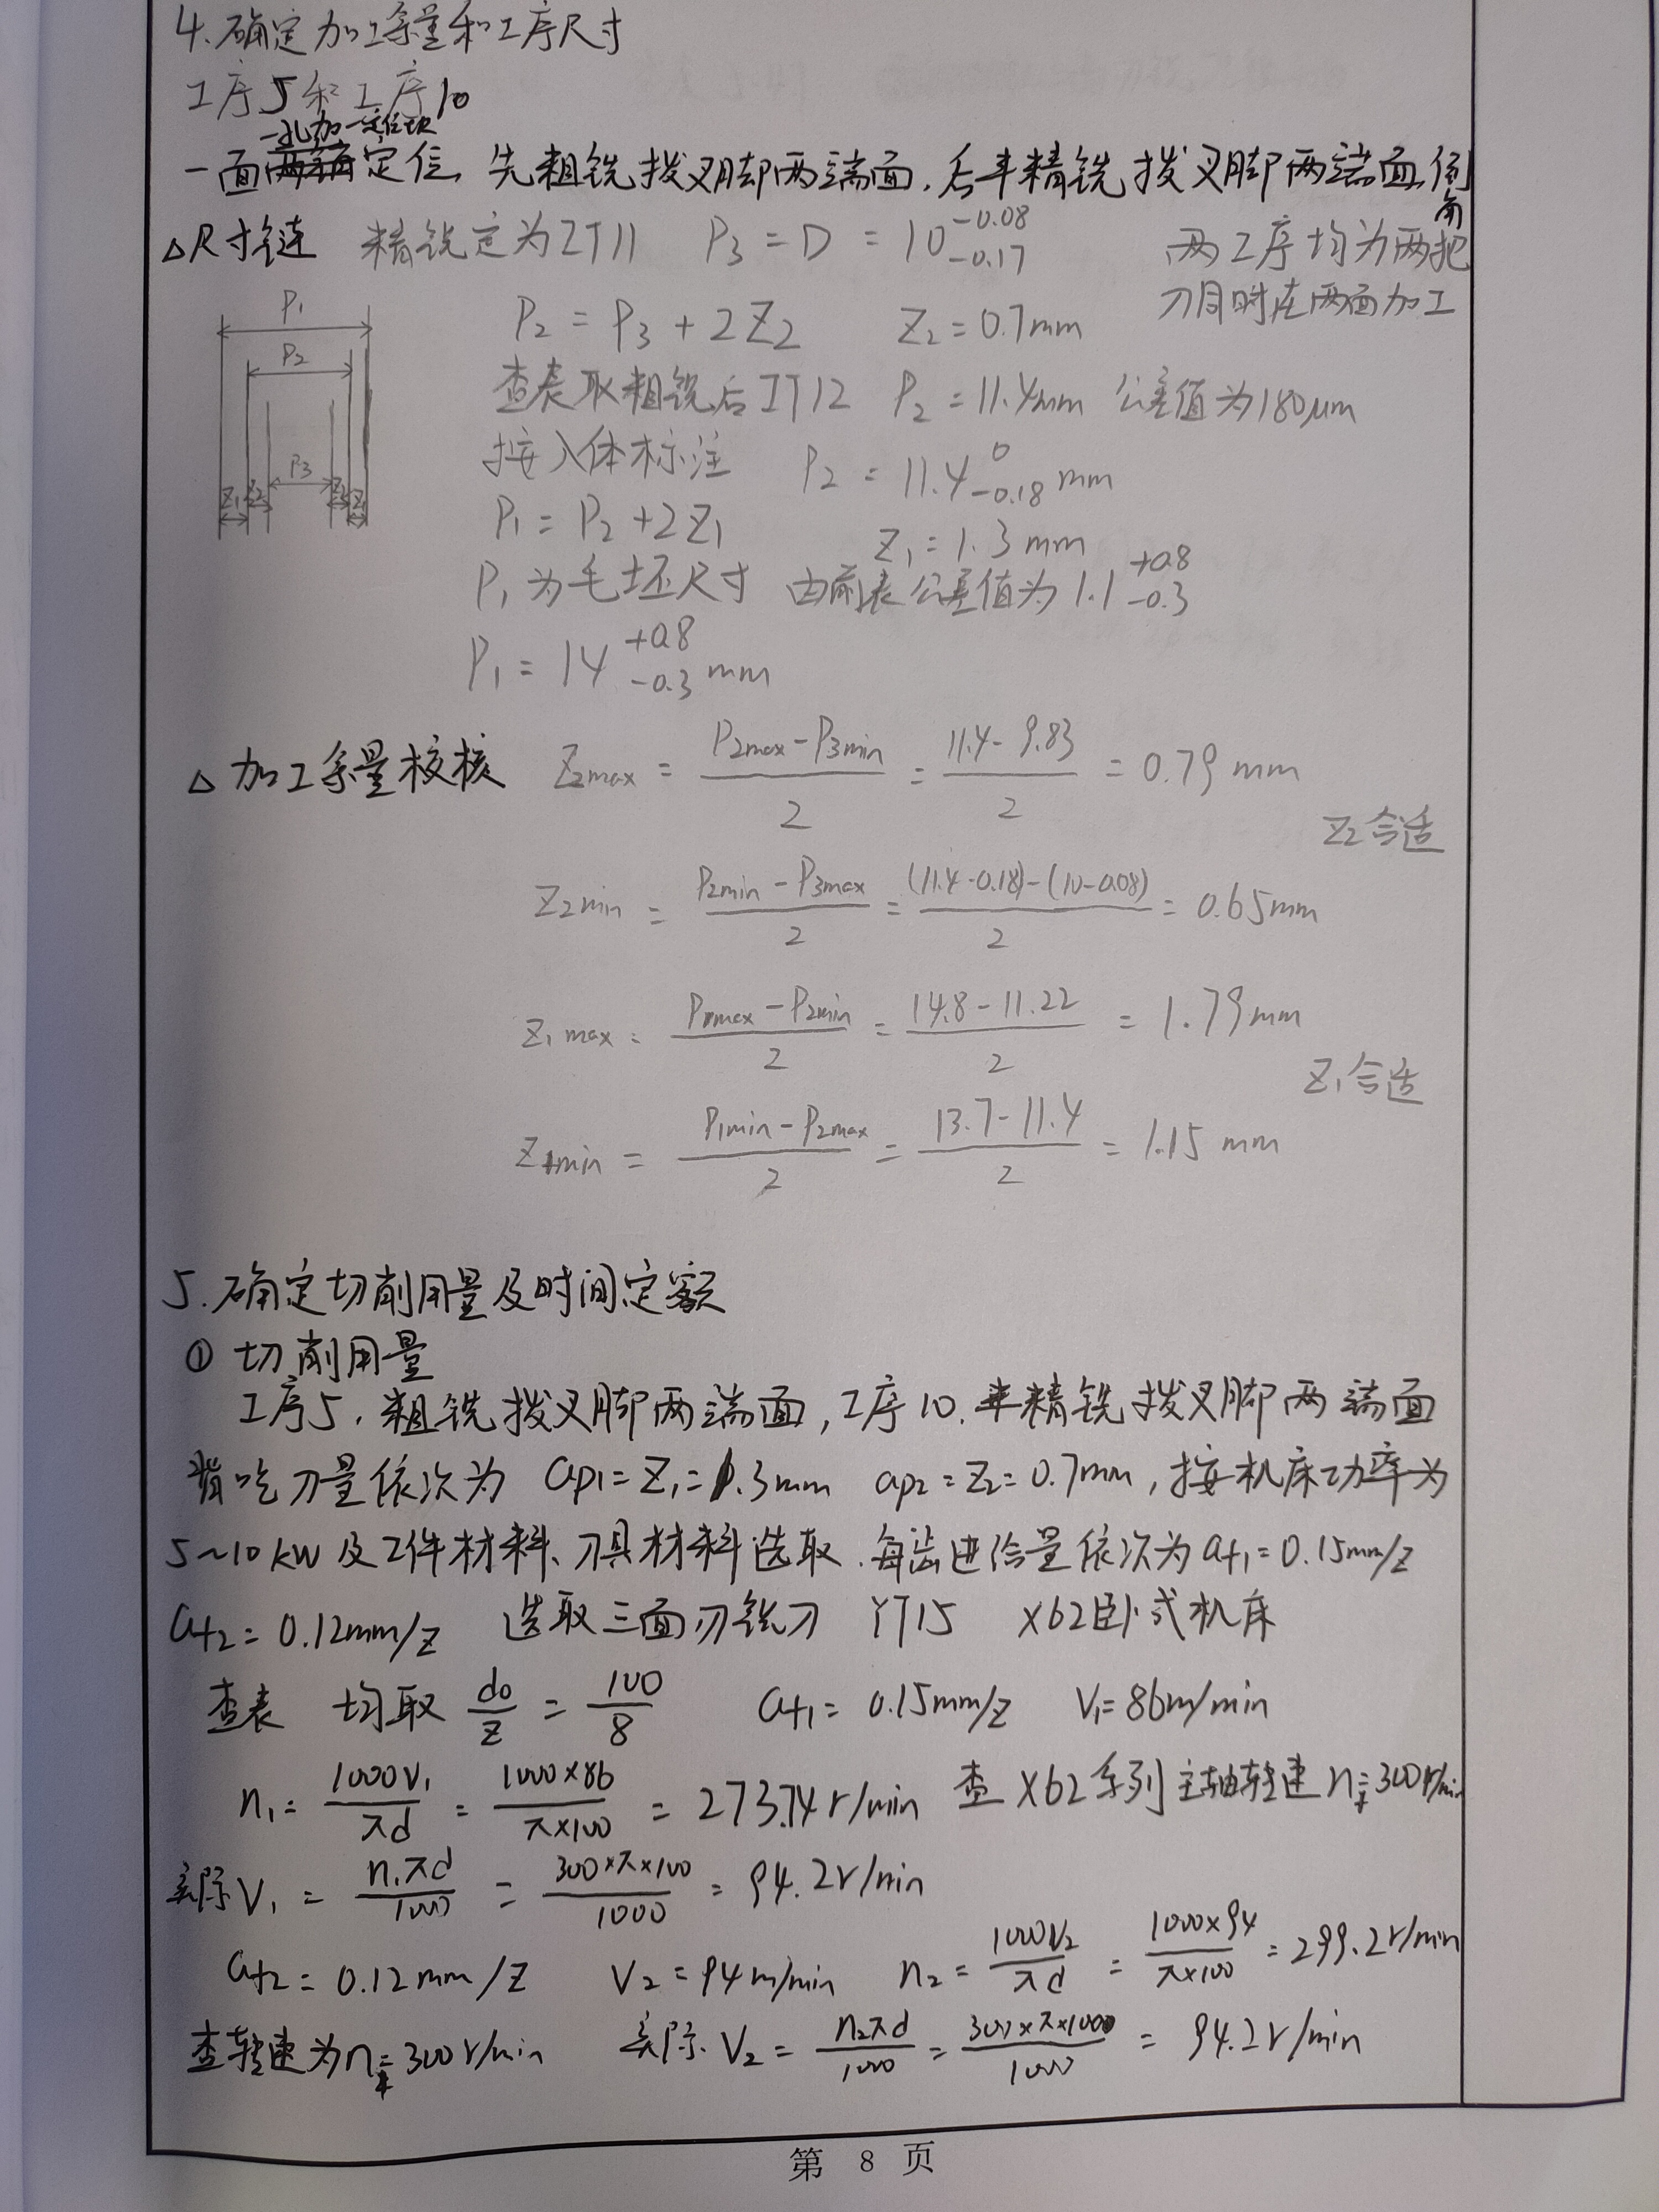 4.确定加工余量和工序尺寸
工序5和工序10
一孔加一定位块
一面定位,先粗铣拨叉脚两端面,后半精铣拨叉脚两端面,倒角
△尺寸链 精铣定为IT11 P₃=D=10 -0.08 -0.17 两工序均为两把
刀同时在两面加工
P₁
P₂
P₃
Z₁ Z₂ Z₂ Z₁
P₂=P₃+2Z₂ Z₂=0.7mm
查表取粗铣后IT12 P₂=11.4mm 公差值为180μm
按入体标注 P₂=11.4 0 -0.18 mm
P₁=P₂+2Z₁ Z₁=1.3mm
P₁为毛坯尺寸 由前表公差值为1.1 +0.8 -0.3
P₁=14 +0.8 -0.3 mm
△加工余量校核 Z₂max = (P₂max-P₃min)/2 = (11.4-9.83)/2 = 0.79mm
Z₂合适
Z₂min = (P₂min-P₃max)/2 = ((11.4-0.18)-(10-0.08))/2 = 0.65mm
Z₁max = (P₁max-P₂min)/2 = (14.8-11.22)/2 = 1.79mm
Z₁合适
Z₁min = (P₁min-P₂max)/2 = (13.7-11.4)/2 = 1.15mm
5.确定切削用量及时间定额
①切削用量
工序5.粗铣拨叉脚两端面,工序10.半精铣拨叉脚两端面
背吃刀量依次为 ap₁=Z₁=1.3mm ap₂=Z₂=0.7mm,按机床功率为
5~10kW及工件材料、刀具材料选取.每齿进给量依次为af₁=0.15mm/z
af₂=0.12mm/z 选取三面刃铣刀 YT15 X62卧式机床
查表 均取 d₀/z = 100/8 af₁=0.15mm/z V₁=86m/min
n₁ = 1000V₁/πd = 1000×86/π×100 = 273.74r/min 查X62系列主轴转速n=300r/min
实际V₁ = n₁πd/1000 = 300×π×100/1000 = 94.2r/min
af₂=0.12mm/z V₂=94m/min n₂ = 1000V₂/πd = 1000×94/π×100 = 299.2r/min
查转速为n=300r/min 实际V₂ = n₂πd/1000 = 300×π×1000/1000 = 94.2r/min
第 8 页